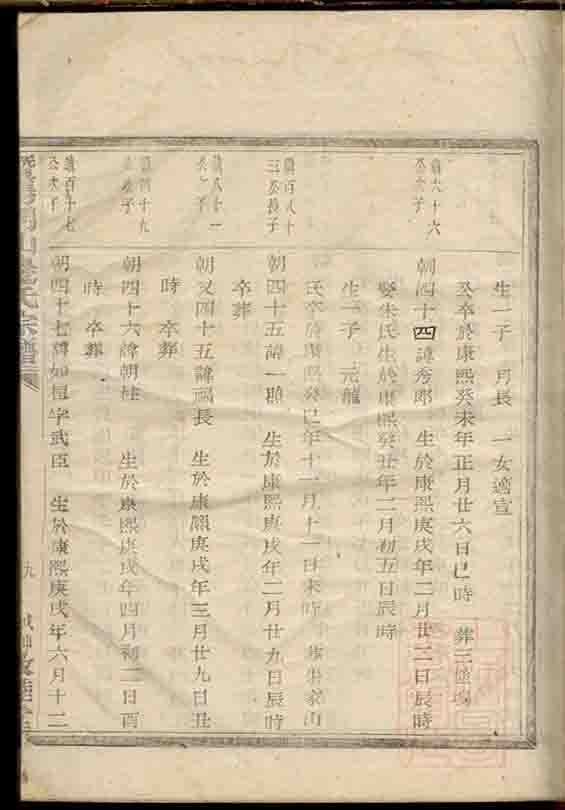 生一子 月長 一女適宣
公卒於康熙癸未年正月廿六日巳時 葬三
義六十六公次子
朝四十四諱秀郎 生於康熙庚戌年二月廿二日辰時
娶朱氏生於康熙癸丑年二月初五日辰時
生一子 元龍
氏卒於康熙癸巳年十一月十一日未時 家山
義百八十三公長子
朝四十五諱一顯 生於康熙庚戌年二月廿九日辰時
卒葬
義八十一公之子
朝又四十五諱福長 生於康熙庚戌年三月廿九日丑
時 卒葬
義四十九公子
朝四十六諱朝桂 生於康熙庚戌年四月初二日酉
時 卒葬
義百十七公次子
朝四十七諱如檀字武臣 生於康熙庚戌年六月十二
氏宗譜
九